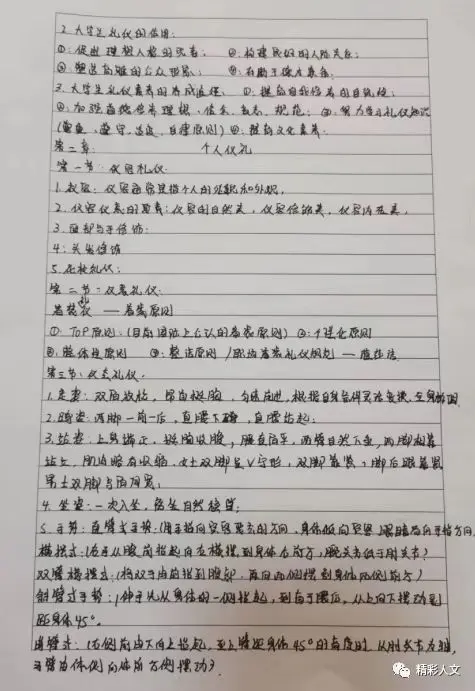 2.大学生礼仪的作用:
①:促进理想人格的完善; ②:构建良好的人际关系;
③:塑造高雅的公众形象; ④:有助于德才兼备;
3.大学生礼仪素养的养成途径: ①:提高自我修养的自觉性;
②:加强道德修养理想、信念、 、规范; ③:努力学习礼仪知识
( 、遵守、适度、自律原则) ④:提高文化素养.
第二章: 个人仪礼
第一节:仪容礼仪.
1.仪容:仪容通常是指个人的外貌和外观.
2.仪容仪表的要素:仪容的自然美,仪容修饰美,仪容内在美.
3.面部与手修饰:
4:头发修饰
5.
第二节:仪表礼仪.
着装礼 —— 着装原则
①:TOP原则:(目前国际上公认的着装原则) ②:个性化原则
③:整体性原则 ④:整洁原则
第三节:仪态礼仪.
1.走姿:双肩放松,
2.蹲姿:两脚一前一后,直腰下蹲,直腰站起;
3.站姿:上身端正,挺胸收腹,腰直肩平,两臂自然下垂,两脚相靠
站立,肌肉略有收缩,女士双脚呈V字形,双脚靠紧,脚后跟靠紧
男士双脚与肩同宽;
4.坐姿:一次入坐,
5.手势:直臂式手势:(用手指向宾客要去的方向,
横摆式:(右手从腹前抬起向右横摆到身体右前方,腕关节低于肘关节)
双臂横摆式:(将双手由前抬到腹部,再向两侧摆到身体两侧前方)
斜臂式手势:(伸手先从身体的一侧抬起,到高于腰后,从上向下摆动到
距身体45°.
曲臂式:(右侧前由下向上抬起,至上臂距身体45°的高度时,以肘关节为轴,
手臂由体侧向体前方侧摆动)
精彩人文